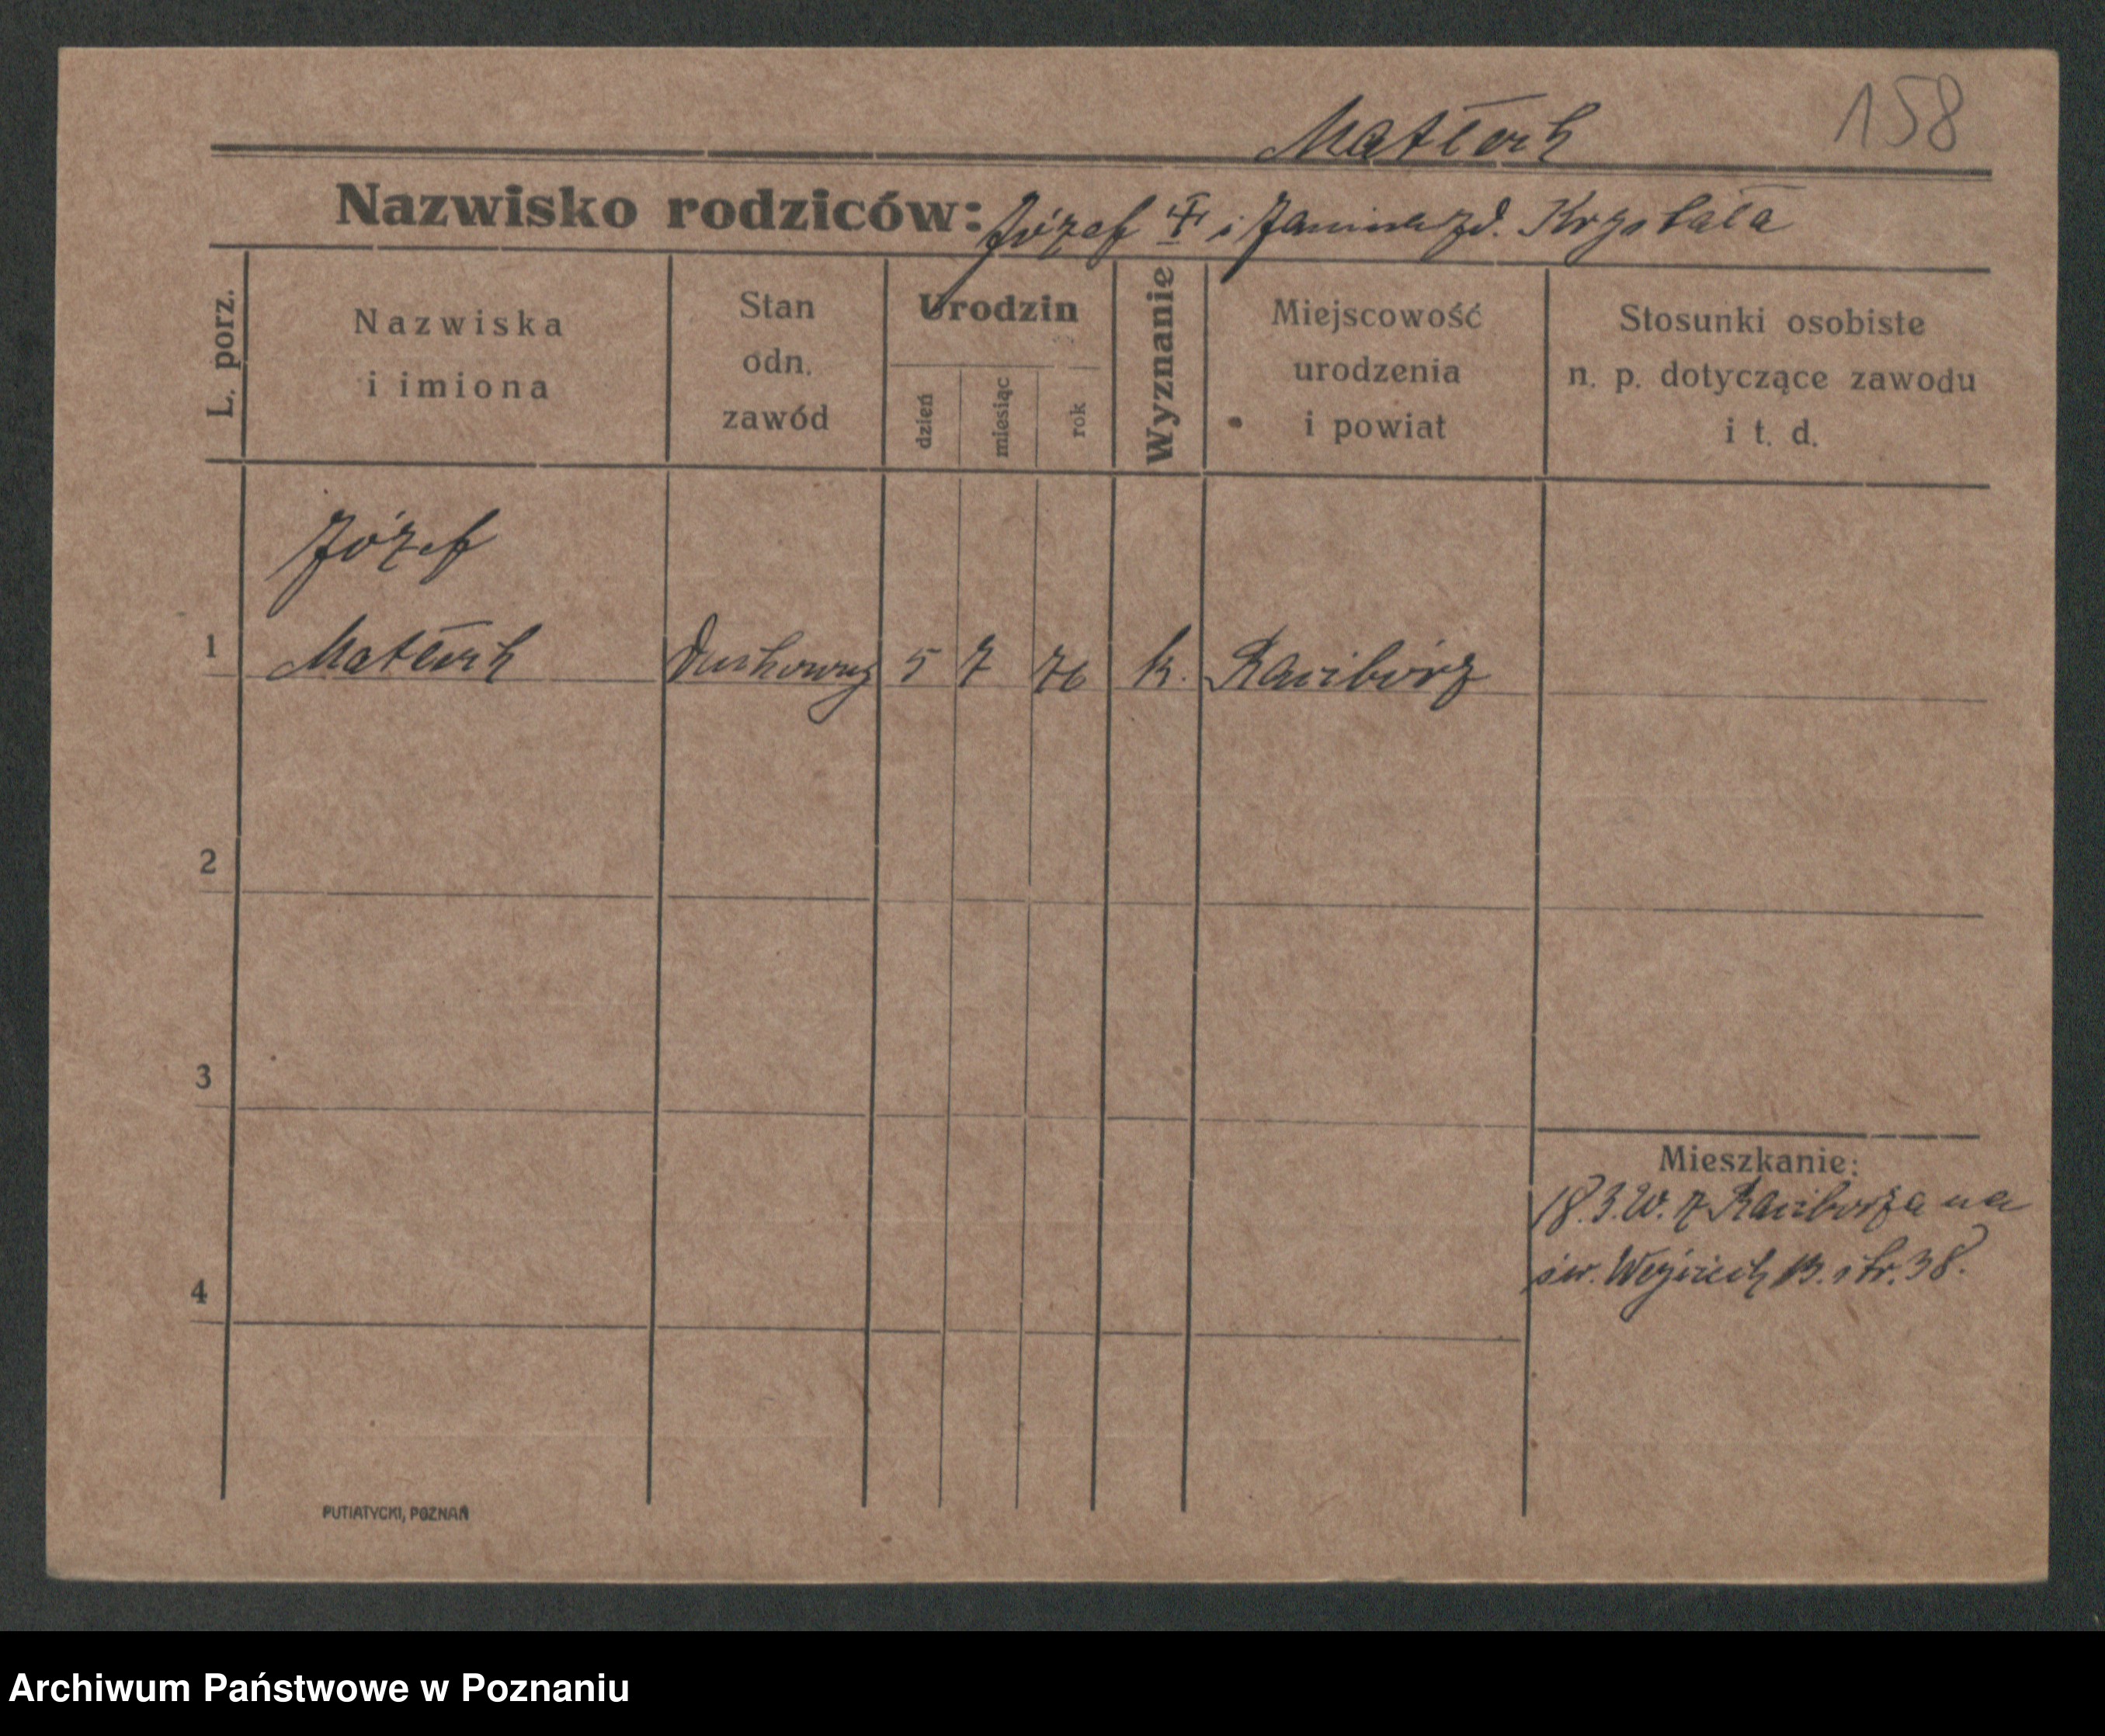 158
Matłoch
Nazwisko rodziców: Józef i Janina zd. Krzstała
L. porz.
Nazwiska
i imiona
Stan
odn.
zawód
Urodzin
dzień
miesiąc
rok
Wyznanie
Miejscowość
urodzenia
i powiat
Stosunki osobiste
n. p. dotyczące zawodu
i t. d.
Józef
1 Duchowny 5 7 76 k. Racibórz
2
3
Mieszkanie:
18.3. z Raciborza na
św. Wojciech str. 38.
4
PUTIATYCKI, POZNAŃ
Archiwum Państwowe w Poznaniu